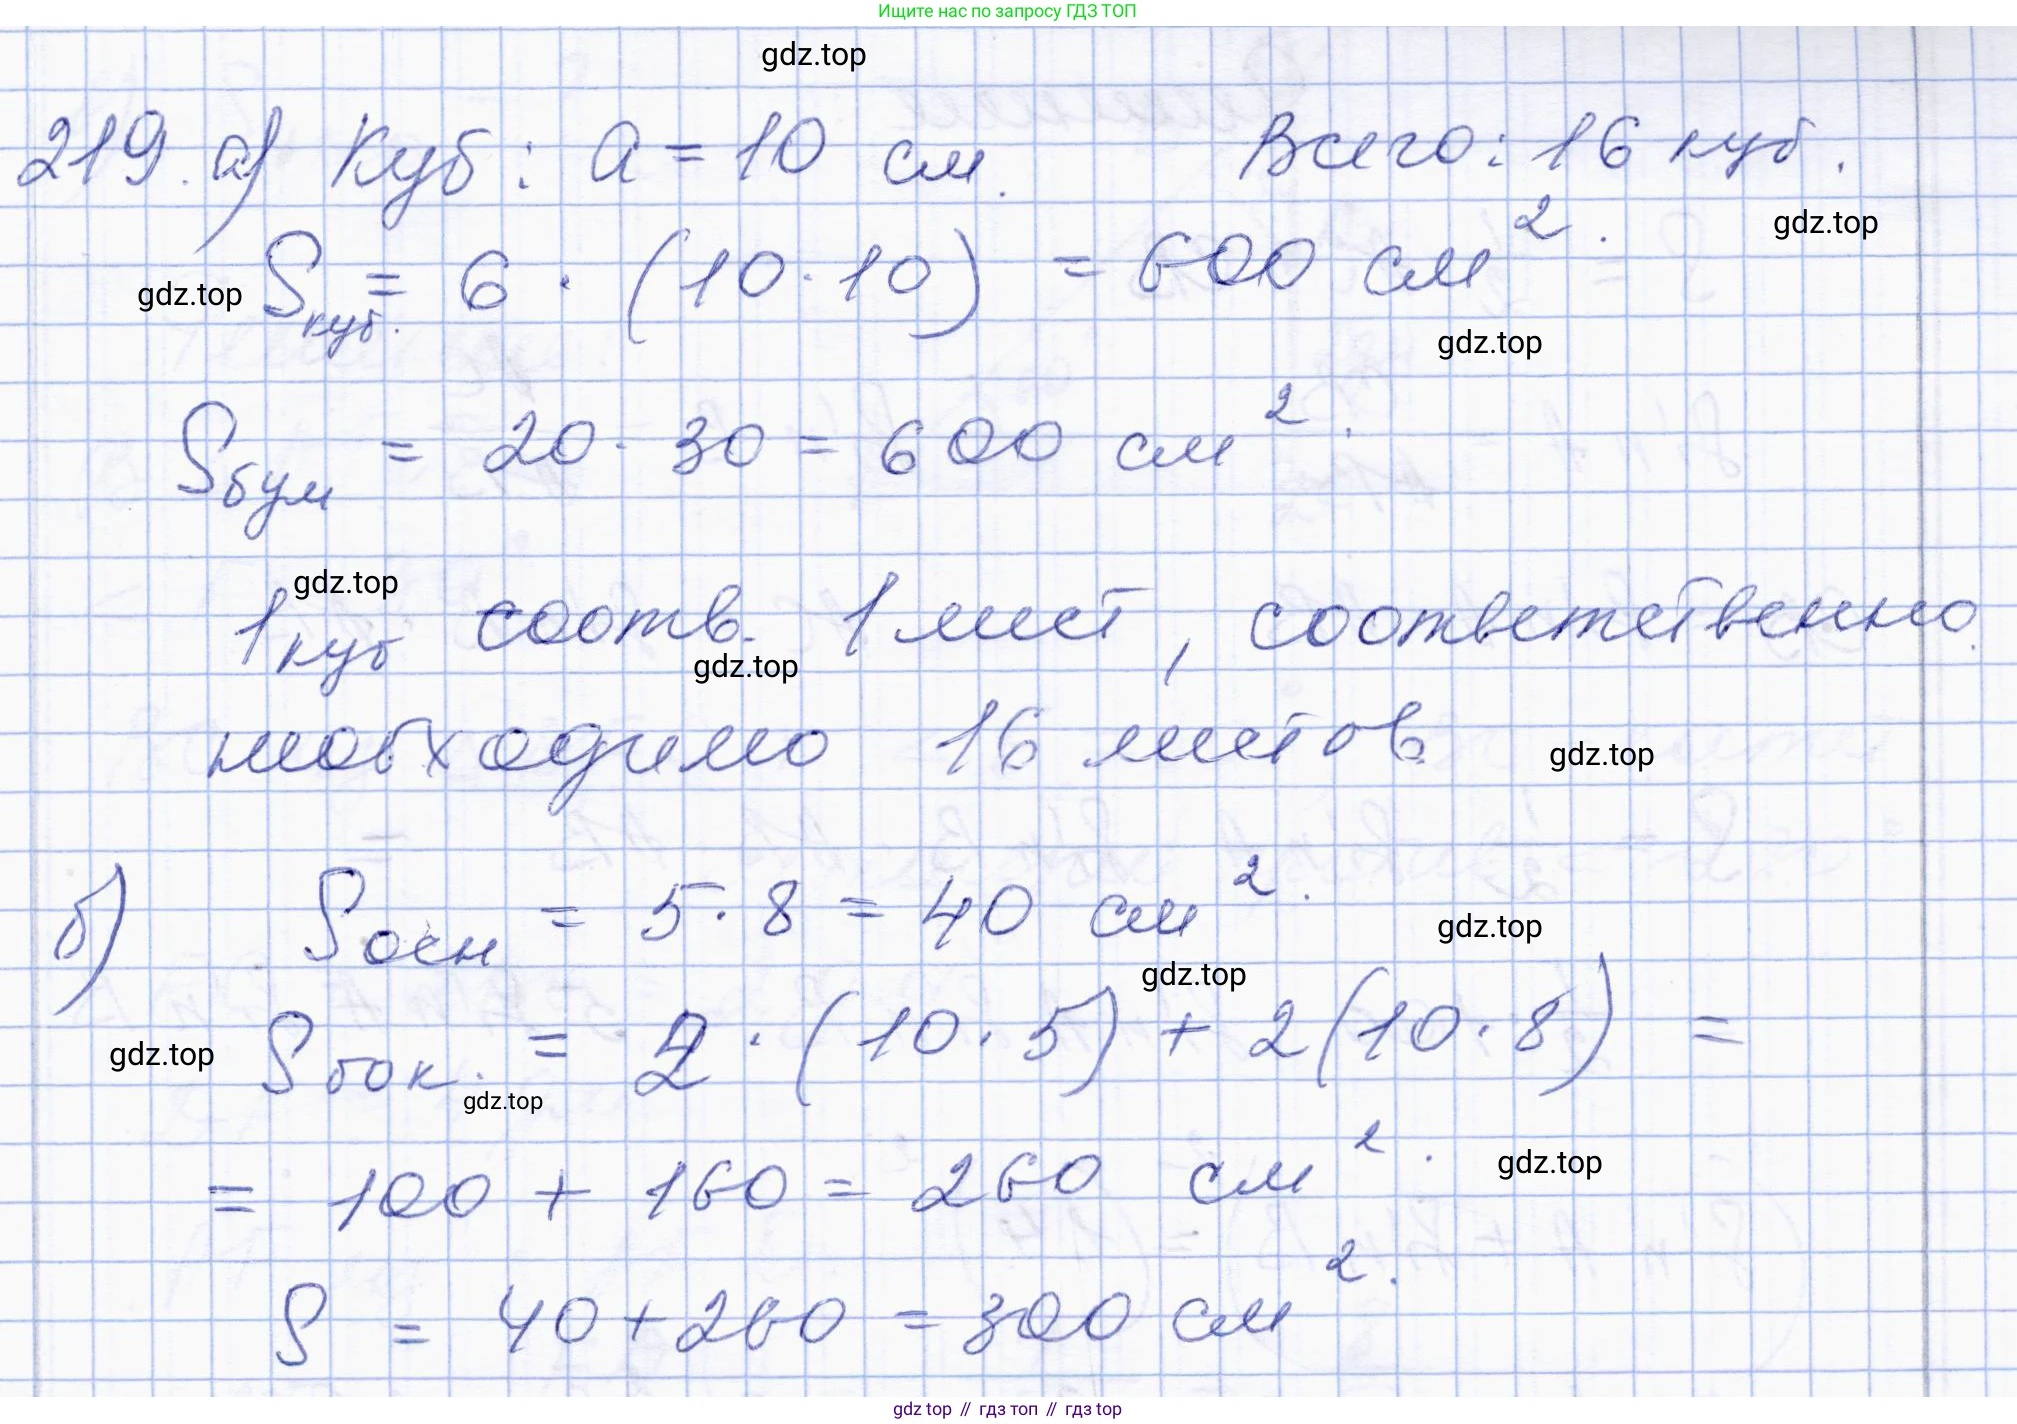 Ищите нас по запросу ГДЗ ТОП
gdz.top
219. а) Куб: a = 10 см. Всего: 16 куб.
gdz.top
gdz.top
Sкуб. = 6 · (10 · 10) = 600 см².
gdz.top
Sбум = 20 · 30 = 600 см².
gdz.top
1куб соотв. 1 лист, соответственно
gdz.top
необходимо 16 листов
gdz.top
б) Sосн = 5 · 8 = 40 см².
gdz.top
gdz.top
Sбок. = 2 · (10 · 5) + 2(10 · 8) =
gdz.top
gdz.top
= 100 + 160 = 260 см².
gdz.top
S = 40 + 260 = 300 см².
gdz top // гдз топ // гдз top